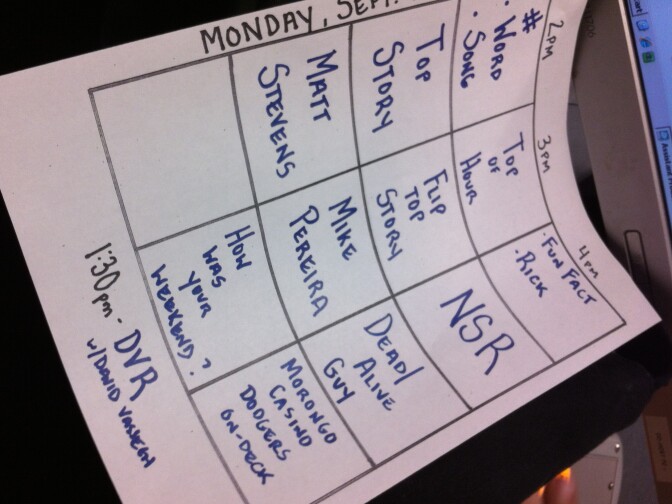 MONDAY, SEPT.
2PM
3PM
4PM
#
· WORD
· SONG
TOP
OF
HOUR
· FUN FACT
· RICK
TOP
STORY
FLIP
TOP
STORY
NSR
MATT
STEVENS
MIKE
PEREIRA
DEAD/
ALIVE
GUY
HOW
WAS
YOUR
WEEKEND?
MORONGO
CASINO
DODGERS
ON-DECK
1:30pm - DVR
w/DAVID